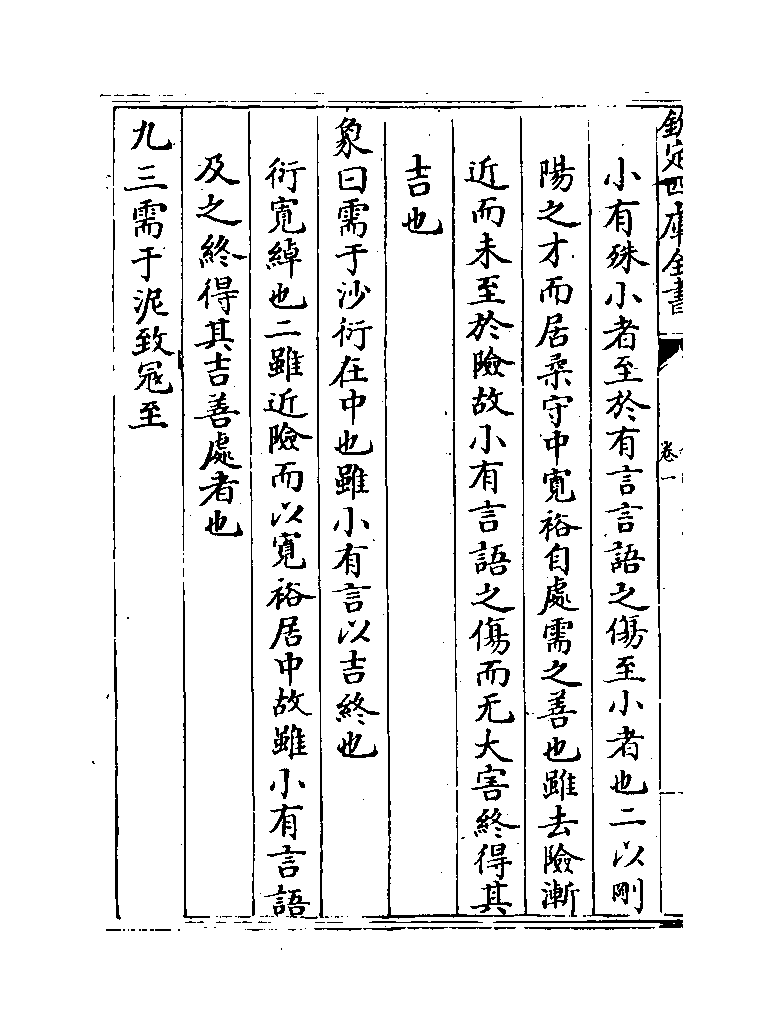 欽定四庫全書
卷一
小有殊小者至於有言言語之傷至小者也二以剛
陽之才而居柔守中寛裕自處需之善也雖去險漸
近而未至於險故小有言語之傷而无大害終得其
吉也
象曰需于沙衍在中也雖小有言以吉終也
衍寛綽也二雖近險而以寛裕居中故雖小有言語
及之終得其吉善處者也
九三需于泥致冦至